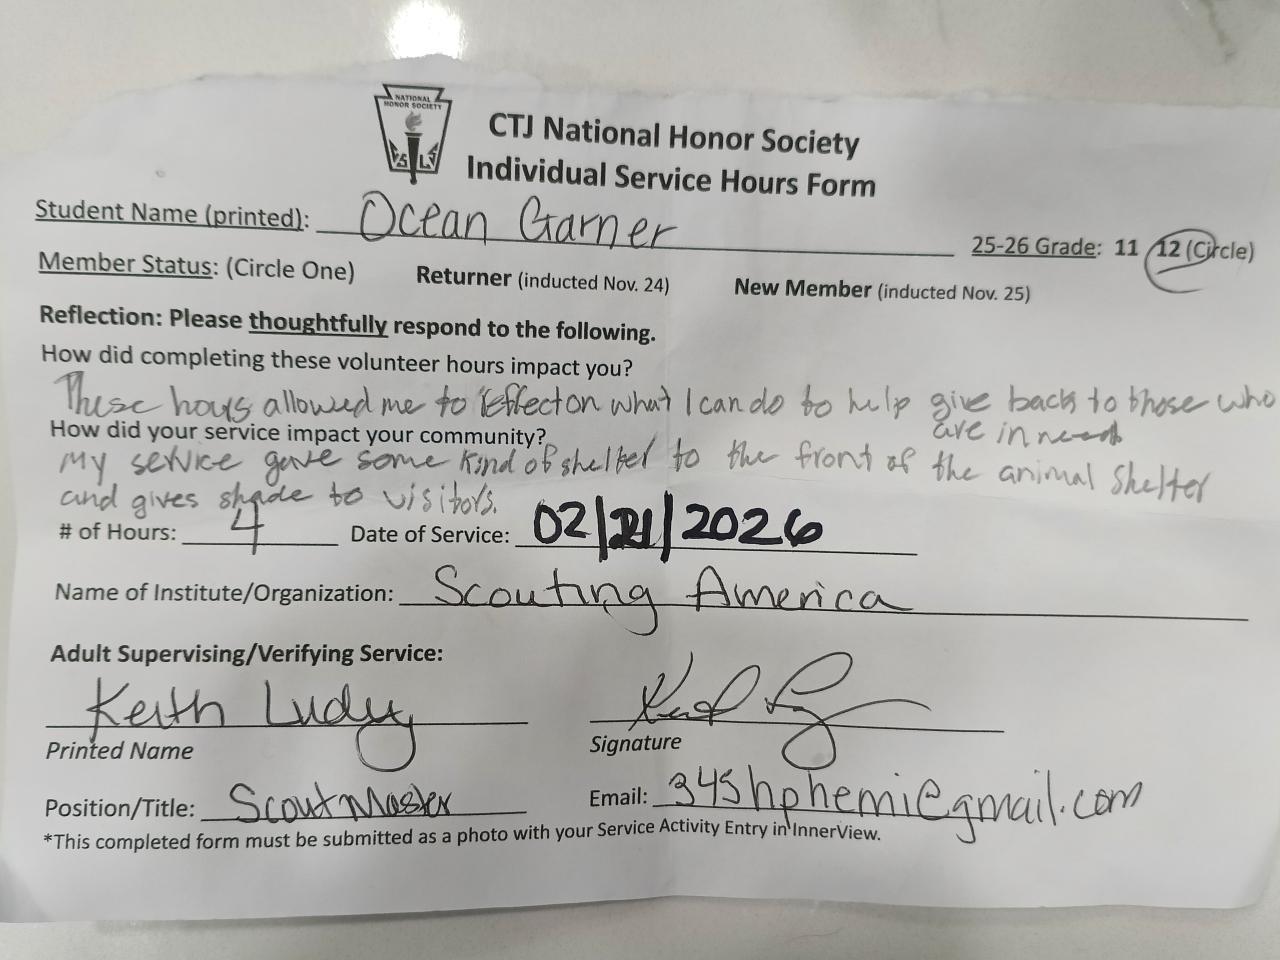 NATIONAL
HONOR SOCIETY
S L
CTJ National Honor Society
Individual Service Hours Form
Student Name (printed): Ocean Garner
25-26 Grade: 11 12 (Circle)
Member Status: (Circle One) Returner (inducted Nov. 24) New Member (inducted Nov. 25)
Reflection: Please thoughtfully respond to the following.
How did completing these volunteer hours impact you?
These hours allowed me to reflect on what I can do to help give back to those who
are in need
How did your service impact your community?
My service gave some kind of shelter to the front of the animal shelter
and gives shade to visitors.
# of Hours: 4 Date of Service: 02/21/2026
Name of Institute/Organization: Scouting America
Adult Supervising/Verifying Service:
Keith Ludy
Printed Name Signature
Position/Title: Scoutmaster Email: 345hphemi@gmail.com
*This completed form must be submitted as a photo with your Service Activity Entry in InnerView.